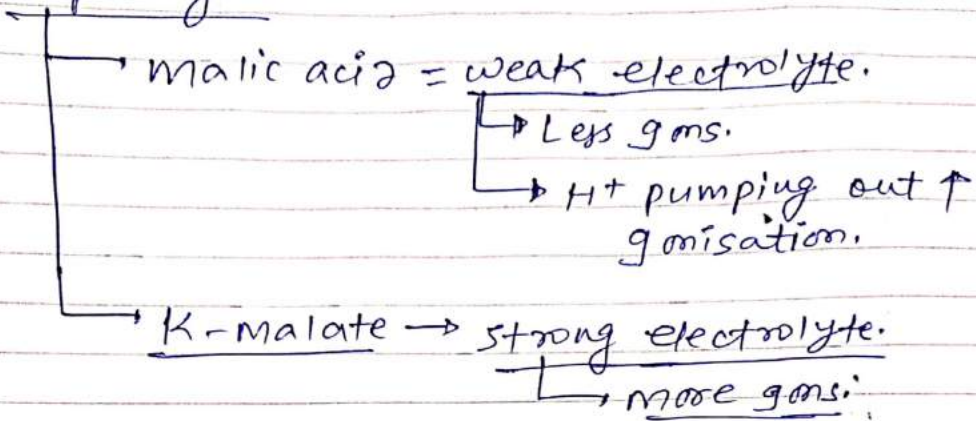 malic acid = weak electrolyte.
Less Ions.
H+ pumping out ↑
Ionisation.
K-malate → strong electrolyte.
more Ions.